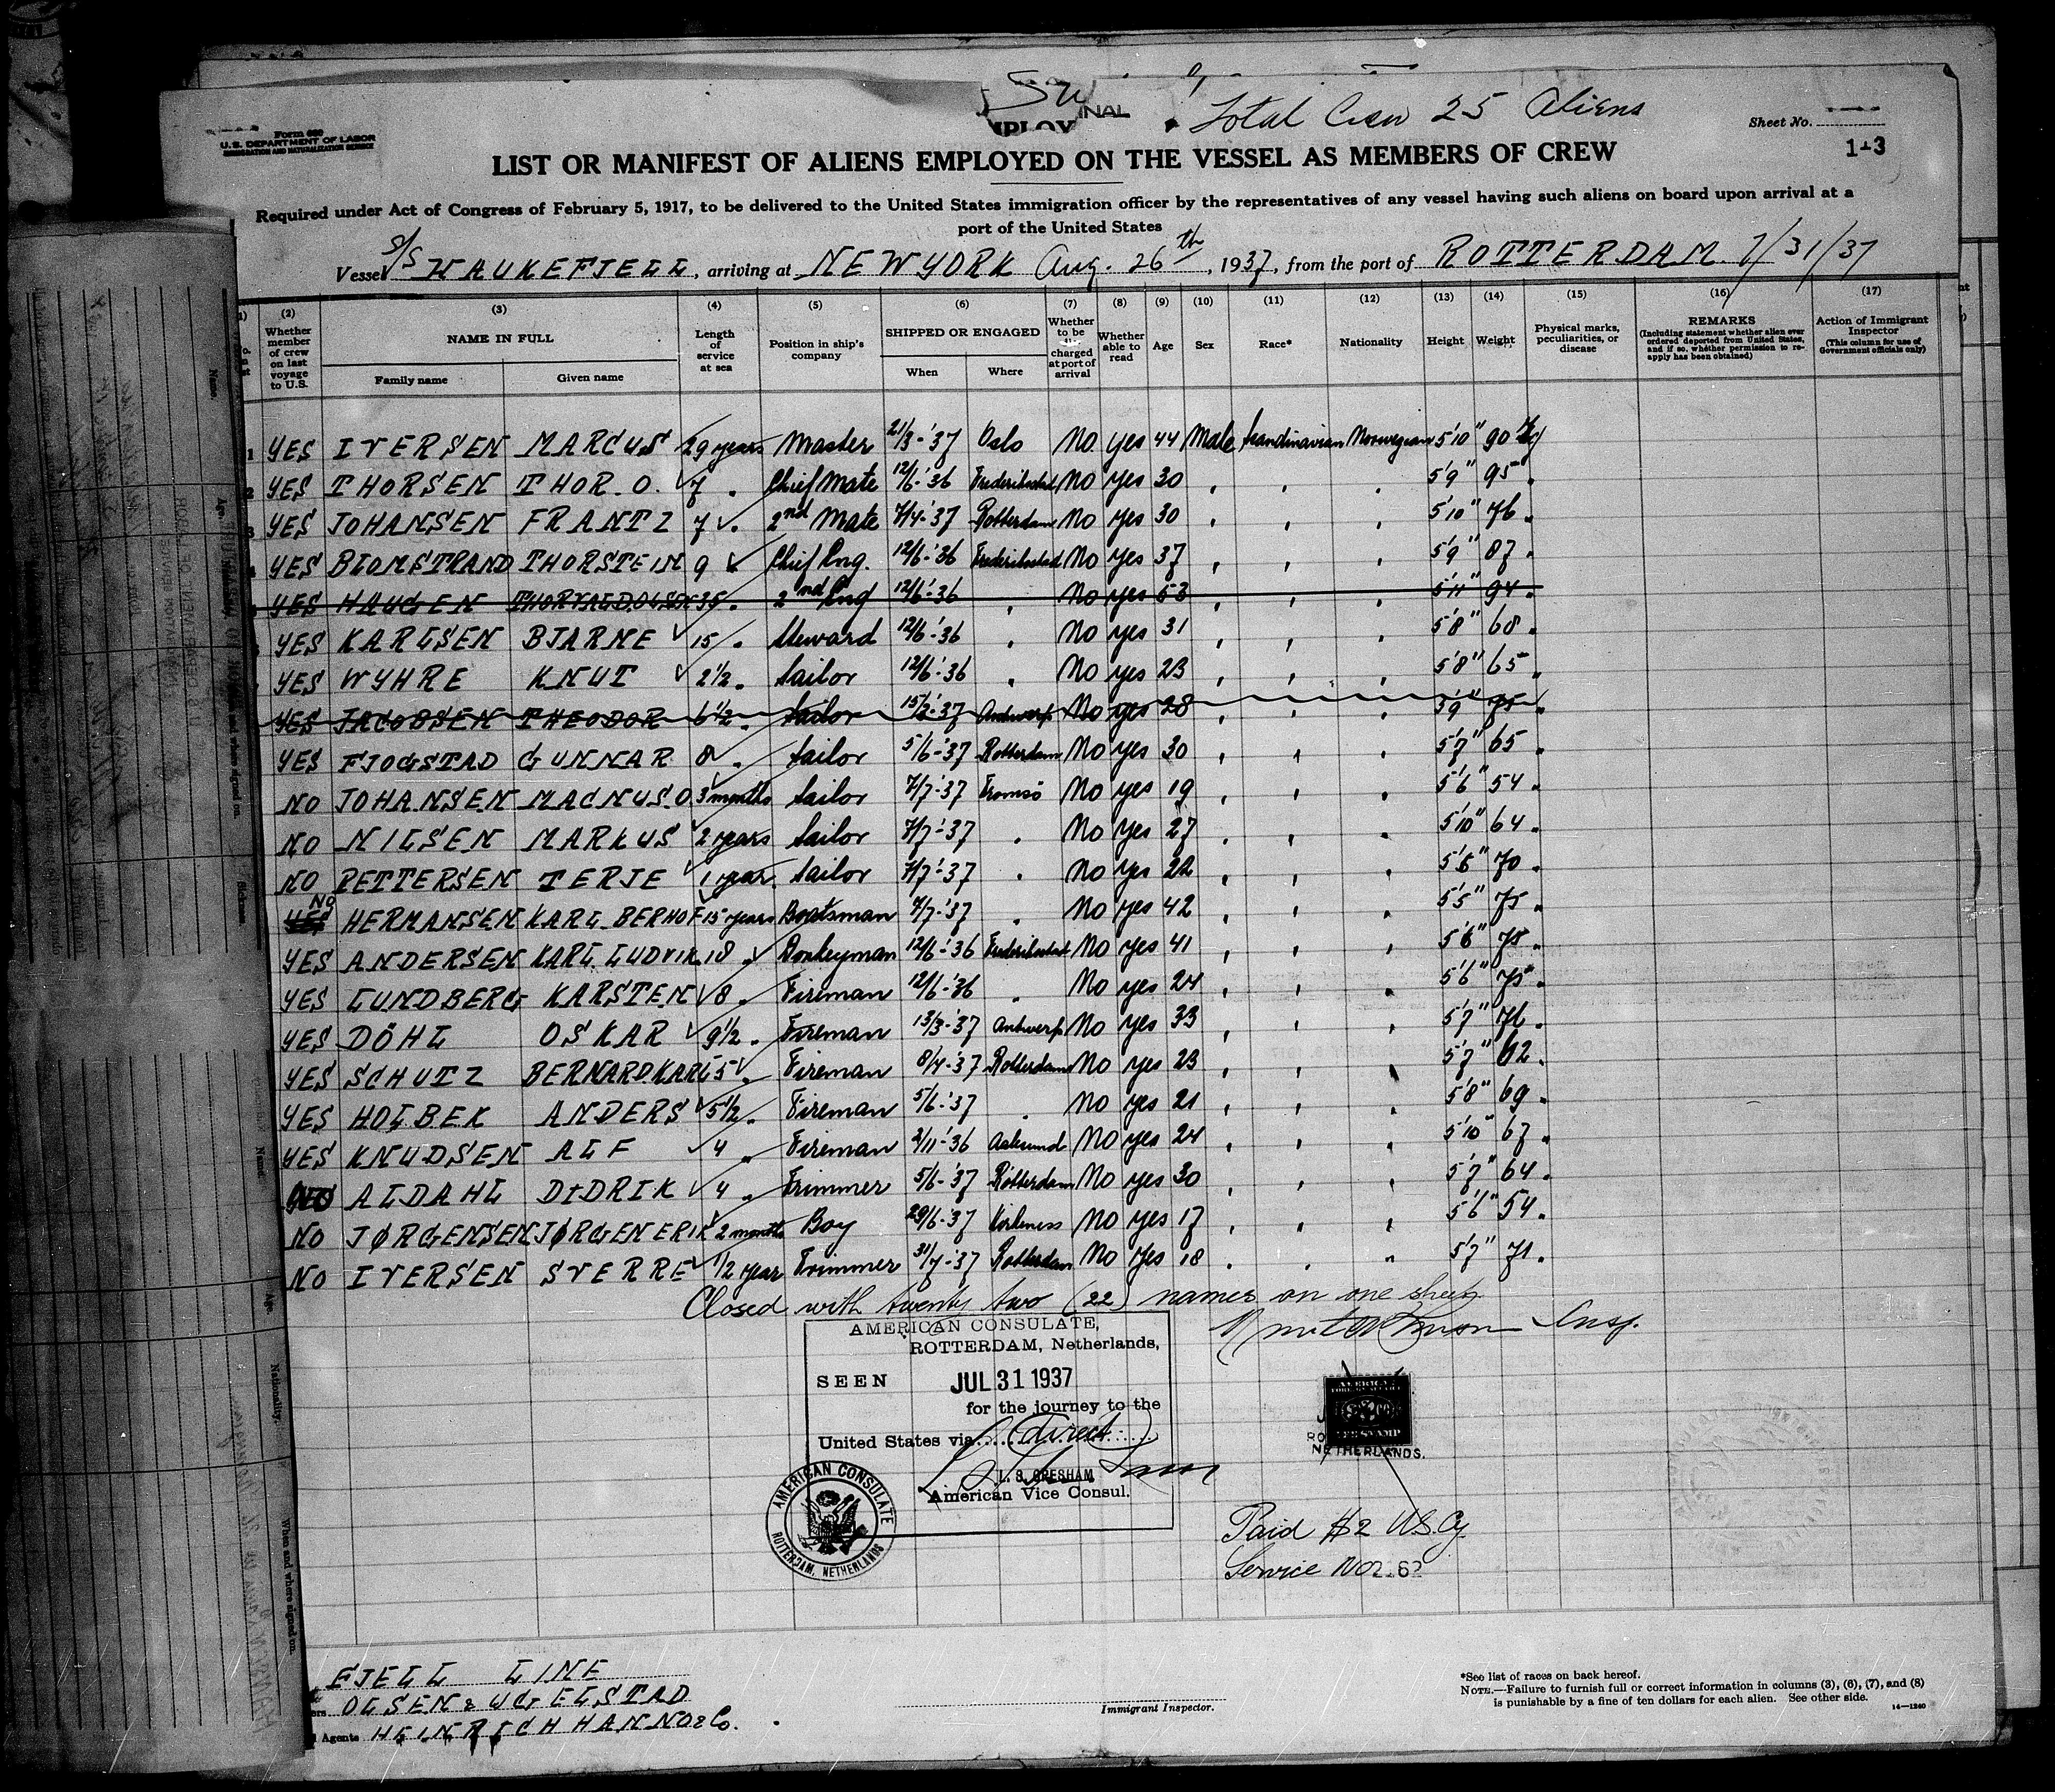 Total Crew 25 Aliens
Form 680
U.S. DEPARTMENT OF LABOR
IMMIGRATION AND NATURALIZATION SERVICE
Sheet No.
1-3
LIST OR MANIFEST OF ALIENS EMPLOYED ON THE VESSEL AS MEMBERS OF CREW
Required under Act of Congress of February 5, 1917, to be delivered to the United States immigration officer by the representatives of any vessel having such aliens on board upon arrival at a
port of the United States
Vessel S/S HAUKEFJELL, arriving at NEW YORK Aug. 26th, 1937, from the port of ROTTERDAM 7/31/37
(2) (3) (4) (5) (6) (7) (8) (9) (10) (11) (12) (13) (14) (15) (16) (17)
Whether member of crew on last voyage to U.S. NAME IN FULL Family name Given name Length of service at sea Position in ship's company SHIPPED OR ENGAGED When Where Whether to be discharged at port of arrival Whether able to read Age Sex Race* Nationality Height Weight Physical marks, peculiarities, or disease REMARKS (Including statement whether alien ever ordered deported from United States, and if so, whether permission to reapply has been obtained) Action of Immigrant Inspector (This column for use of Government officials only)
1 YES IVERSEN MARCUS 29 years Master 21/3-'37 Oslo No yes 44 Male Scandinavian Norwegian 5'10" 90 kg
2 YES THORSEN THOR. O. 7 " Chief Mate 12/6-'36 Frederikstad No yes 30 " " " 5'9" 95 "
3 YES JOHANSEN FRANTZ 7 " 2nd Mate 7/4-'37 Rotterdam No yes 30 " " " 5'10" 76 "
4 YES BLOMSTRAND THORSTEIN 9 Chief Eng. 12/6-'36 Frederikstad No yes 37 " " " 5'9" 87 "
YES HAUGEN THORVALD.OLSEN 35 " 2nd Eng 12/6-'36 " No yes 53 " " " 5'11" 94 "
YES KARLSEN BJARNE 15 " Steward 12/6-'36 " No yes 31 " " " 5'8" 68 "
YES WYHRE KNUT 2½ " Sailor 12/6-'36 " No yes 23 " " " 5'8" 65 "
YES JACOBSEN THEODOR 6½ " Sailor 15/2-'37 Antwerp No yes 28 " " " 5'9" 75 "
YES FJOGSTAD GUNNAR 8 " Sailor 5/6-'37 Rotterdam No yes 30 " " " 5'7" 65 "
NO JOHANSEN MAGNUS.O. 3 months Sailor 7/7-'37 Tromsö No yes 19 " " " 5'6" 54 "
NO NILSEN MARKUS 2 years Sailor 7/7-'37 " No yes 27 " " " 5'10" 64 "
NO PETTERSEN TERJE 1 year Sailor 7/7-'37 " No yes 22 " " " 5'6" 70 "
NO HERMANSEN KARL.BERNOF 15 years Boatsman 7/7-'37 " No yes 42 " " " 5'5" 75 "
YES ANDERSEN KARL.LUDVIK 18 " Donkeyman 12/6-'36 Frederikstad No yes 41 " " " 5'6" 78 "
YES LUNDBERG KARSTEN 8 " Fireman 12/6-'36 " No yes 24 " " " 5'6" 75 "
YES DÖHL OSKAR 9½ " Fireman 13/3-'37 Antwerp No yes 33 " " " 5'7" 76 "
YES SCHUTZ BERNARD.KARL 5 " Fireman 8/4-'37 Rotterdam No yes 23 " " " 5'7" 62 "
YES HOLBEK ANDERS 5½ " Fireman 5/6-'37 " No yes 21 " " " 5'8" 69 "
YES KNUDSEN ALF 4 " Fireman 2/11-'36 Aalesund No yes 24 " " " 5'10" 67 "
ALDAHL DIDRIK 4 " Trimmer 5/6-'37 Rotterdam No yes 30 " " " 5'7" 64 "
NO JØRGENSEN JØRGEN ERIK 2 months Boy 29/6-'37 Kirkenes No yes 17 " " " 5'6" 54 "
NO IVERSEN SVERRE ½ year Trimmer 31/7-'37 Rotterdam No Yes 18 " " " 5'7" 71 "
Closed with twenty two (22) names on one sheet
Insp.
AMERICAN CONSULATE,
ROTTERDAM, Netherlands,
SEEN JUL 31 1937
for the journey to the
United States via (direct)
L. S. GRESHAM
American Vice Consul.
AMERICAN CONSULATE
ROTTERDAM, NETHERLANDS
NETHERLANDS.
Paid $2 US Cy
Service No
FJELL LINE
OLSEN & UGELSTAD
Agents HEINRICH HANNO & Co.
Immigrant Inspector.
*See list of races on back hereof.
NOTE.—Failure to furnish full or correct information in columns (3), (6), (7), and (8)
is punishable by a fine of ten dollars for each alien. See other side.
14—1240